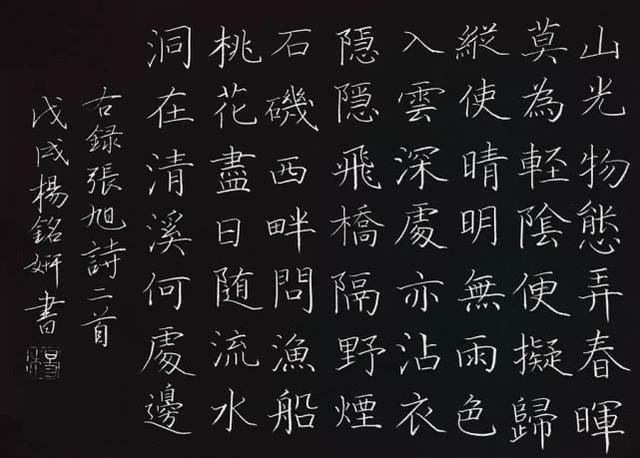 山光物態弄春暉
莫為輕陰便擬歸
縱使晴明無雨色
入雲深處亦沾衣
隱隱飛橋隔野煙
石磯西畔問漁船
桃花盡日随流水
洞在清溪何處邊
右録張旭詩二首
戊戌楊銘妍書